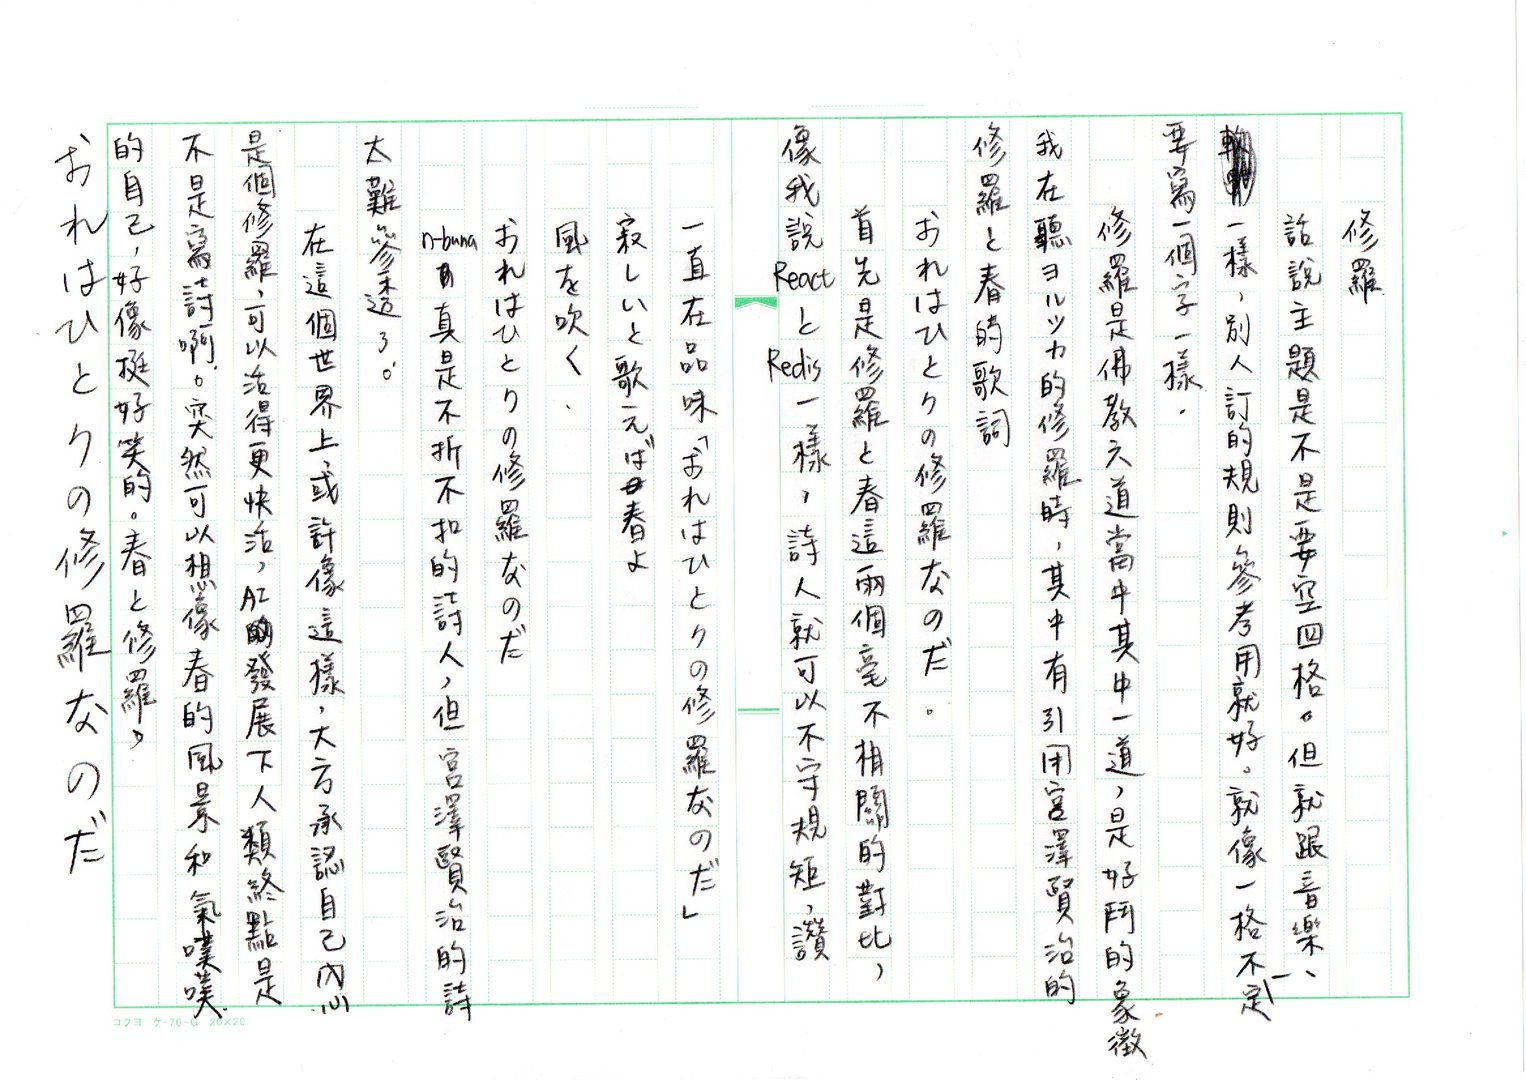 修羅
話說主題是不是要空四格。但就跟音樂、
一樣，別人訂的規則參考用就好。就像一格不一定
要寫一個字一樣。
修羅是佛教六道當中其中一道，是好鬥的象徵
我在聽ヨルシカ的修羅時，其中有引用宮澤賢治的
修羅と春的歌詞
おれはひとりの修羅なのだ。
首先是修羅と春這兩個毫不相關的對比，
像我說ReactとRedis一樣，詩人就可以不守規矩，讚
一直在品味「おれはひとりの修羅なのだ」
寂しいと歌えば春よ
風を吹く.
おれはひとりの修羅なのだ
n-buna真是不折不扣的詩人，但宮澤賢治的詩
太難參透了。
在這個世界上，或許像這樣，大方承認自己內心
是個修羅，可以活得更快活，AI發展下人類終點是
不是寫詩啊。突然可以想像春的風景和氣噗噗
的自己，好像挺好笑的。春と修羅。
おれはひとりの修羅なのだ
コクヨ ケ-70-G 20×20